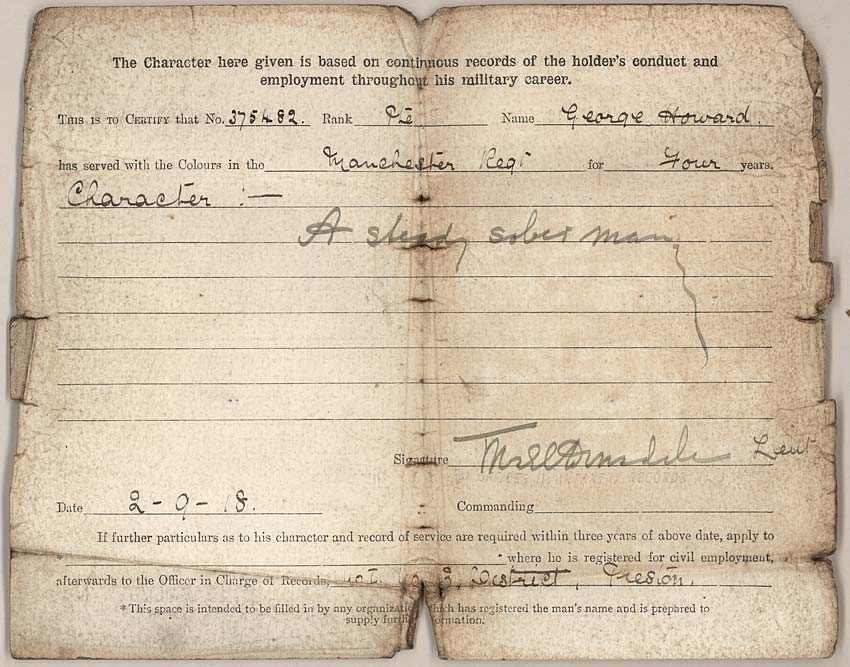 The Character here given is based on continuous records of the holder's conduct and
employment throughout his military career.
THIS IS TO CERTIFY that No. 375482. Rank Pte Name George Howard.
has served with the Colours in the Manchester Regt for Four years.
Character :—
A steady sober man
Signature Lieut
Date 2-9-18. Commanding
If further particulars as to his character and record of service are required within three years of above date, apply to
* * where he is registered for civil employment,
afterwards to the Officer in Charge of Records, District, Preston.
* This space is intended to be filled in by any organization which has registered the man's name and is prepared to
supply further information.